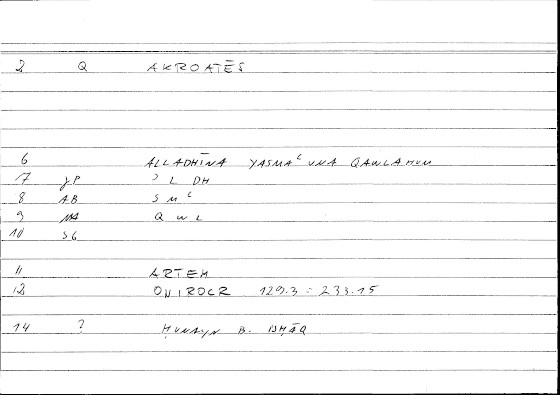 2 Q AKROATĒS
6 ALLADHĪNA YASMAʿUNA QAWLAHUM
7 JP ʾ L DH
8 AB S M ʿ
9 NA Q W L
10 SG
11 ARTEM
12 ONIROCR 129.3 = 233.15
14 ? ḤUNAYN B. ISḤĀQ